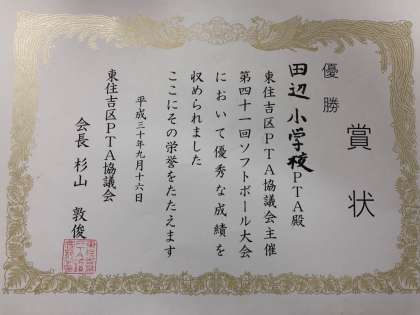 賞状
優勝
田辺小学校PTA殿
東住吉区PTA協議会主催
第四十一回ソフトボール大会
において優秀な成績を
収められました
ここにその栄誉をたたえます
平成三十年九月十六日
東住吉区PTA協議会
会長 杉山 敦俊